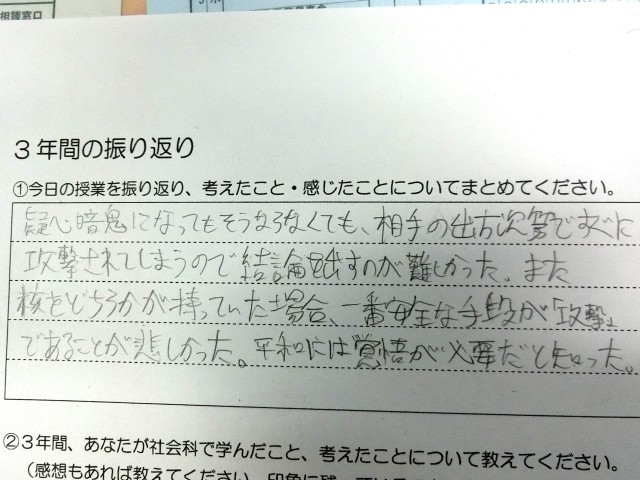 相談窓口
3年間の振り返り
①今日の授業を振り返り、考えたこと・感じたことについてまとめてください。
疑心暗鬼になってもそうならなくても、相手の出方次第ですぐに
攻撃されてしまうので結論を出すのが難しかった。また
核をどちらかが持っていた場合、一番安全な手段が「攻撃」
であることが悲しかった。平和には覚悟が必要だと知った。
②3年間、あなたが社会科で学んだこと、考えたことについて教えてください。
(感想もあれば教えてください。印象に残っている